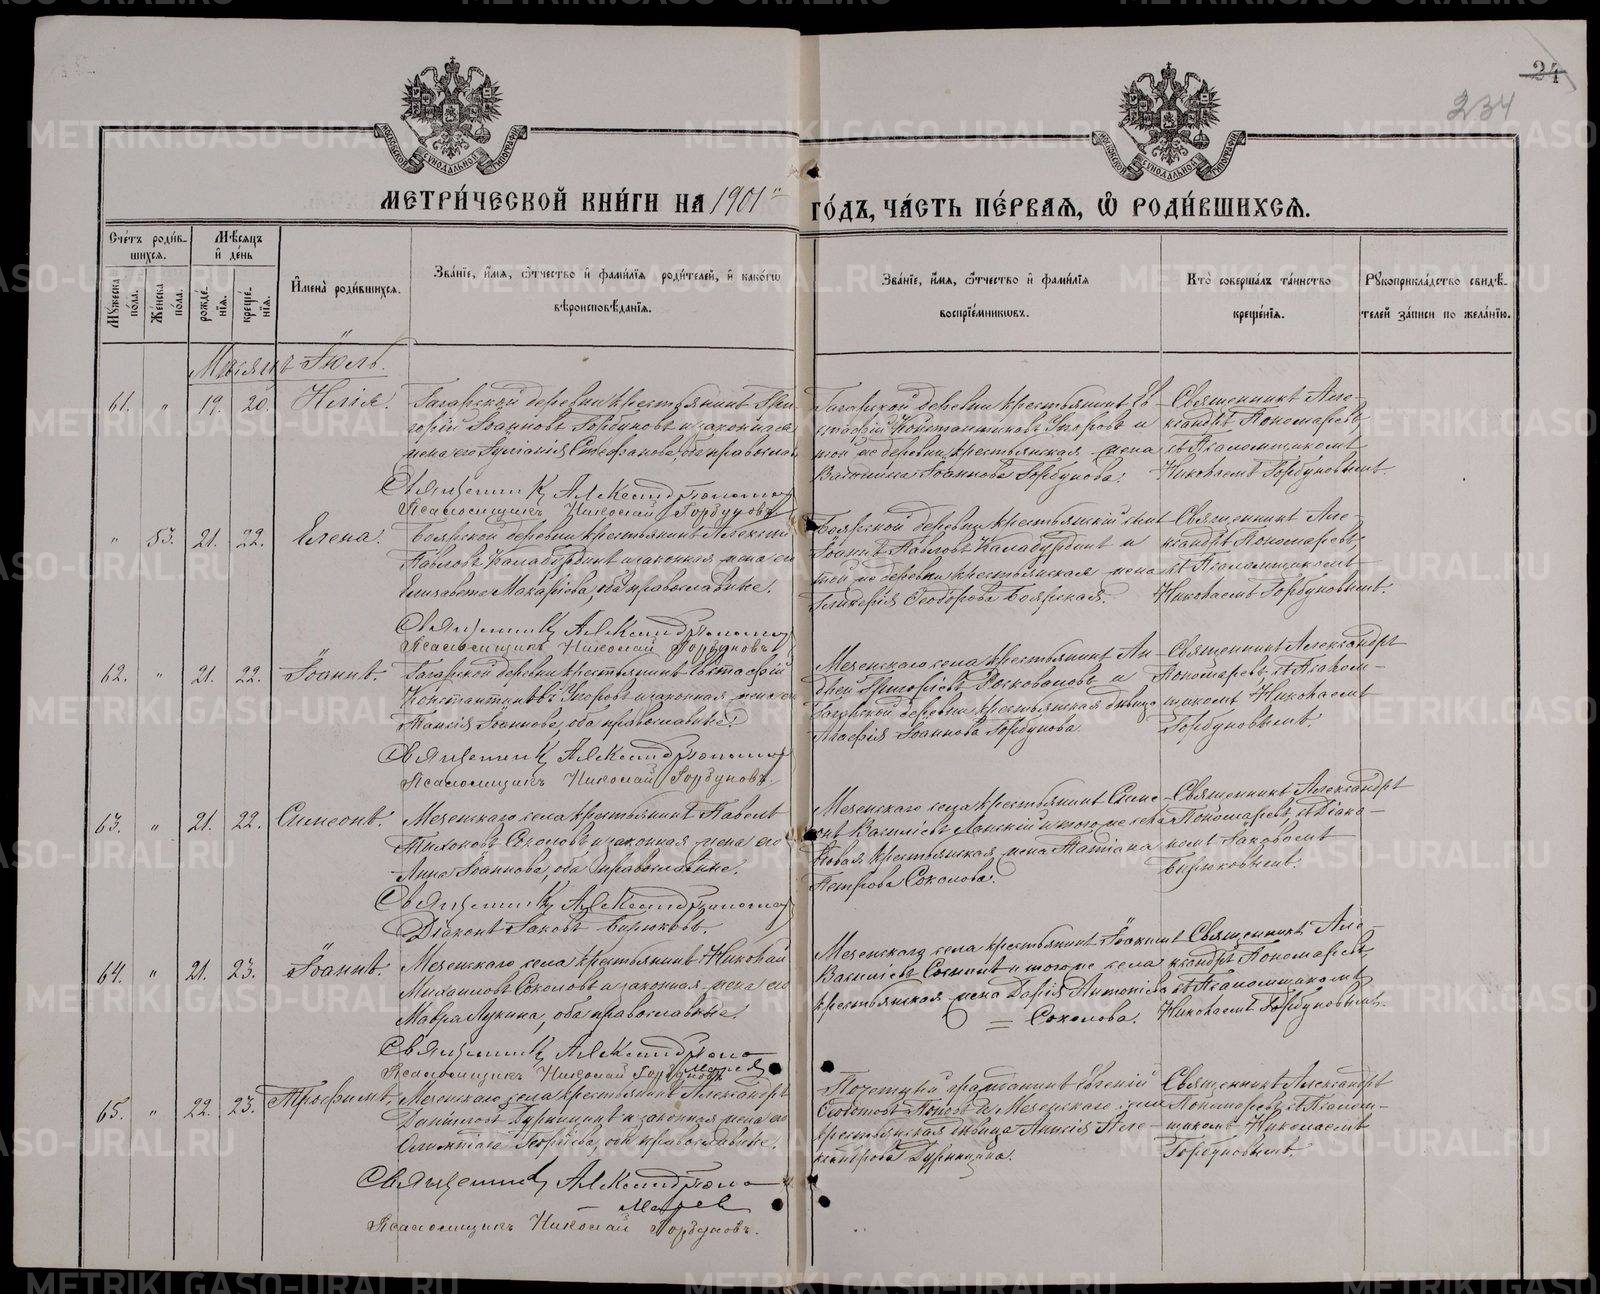 24
234
МЕТРИ́ЧЕСКОЙ КНИ́ГИ НА 1901й ГО́ДЪ, ЧА́СТЬ ПЕ́РВАЯ, Ѡ РОДИ́ВШИХСѦ.
Сче́тъ роди́в-
шихся.
Мѣ́сяцъ
и҆ де́нь
Му́жеска по́ла.
Же́нска по́ла.
рожде́-
нїя.
креще́-
нїя.
И҆мена̀ роди́вшихся.
Зва́нїе, и҆́мя, ѻ҆́тчество и҆ фами́лїя роди́телей, и҆ како́гѡ
вѣроисповѣ́данїя.
Зва́нїе, и҆́мя, ѻ҆́тчество и҆ фами́лїя
воспрїе́мниковъ.
Кто̀ соверша́лъ та́инство
креще́нїя.
Рукоприкла́дство свидѣ́-
телей за́писи по жела́нїю.
Мѣсяцъ Іюль.
61. " 19. 20. Илія.
Гагарской деревни крестьянинъ Гри-
горій Іоанновъ Горбуновъ и законная
жена его Іуліанія Стефанова, оба православ.
Священникъ Александръ Пономарев
Псаломщикъ Николай Горбуновъ
Гагарской деревни крестьянинъ Ев-
стафій Константиновъ Угоровъ и
той же деревни крестьянская жена
Іоаннова Горбунова.
Священникъ Але-
ксандръ Пономаревъ,
съ Псаломщикомъ
Николаемъ Горбуновымъ.
" 53. 21. 22. Елена.
Боярской деревни крестьянинъ Алексій
Павловъ Калабурдинъ и законная жена его
Елизавета Макаріева, оба православные.
Священникъ Александръ Пономарев
Псаломщикъ Николай Горбуновъ
Боярской деревни крестьянскій сынъ
Іоаннъ Павловъ Калабурдинъ и
той же деревни крестьянская жена
Гликерія Ѳеодорова Боярская.
Священникъ Але-
ксандръ Пономаревъ,
съ Псаломщикомъ
Николаемъ Горбуновымъ.
62. " 21. 22. Іоаннъ.
Гагарской деревни крестьянинъ Евстафій
Константиновъ Угоровъ и законная жена его
Таисія Іоаннова, оба православные.
Священникъ Александръ Пономарев
Псаломщикъ Николай Горбуновъ.
Мезенскаго села крестьянинъ Ан-
дрей Григоріевъ и
Гагарской деревни крестьянская дѣвица
Агафія Іоаннова Горбунова.
Священникъ Александръ
Пономаревъ съ Псалом-
щикомъ Николаемъ
Горбуновымъ.
63. " 21. 22. Симеонъ.
Мезенскаго села крестьянинъ Павелъ
Тихоновъ Соколовъ и законная жена его
Анна Іоаннова, оба православные.
Священникъ Александръ Пономарев
Діаконъ Іаковъ Бирюковъ.
Мезенскаго села крестьянинъ Симе-
онъ Василіевъ и того же села
крестьянская жена Татіана
Петрова Соколова.
Священникъ Александръ
Пономаревъ съ Діако-
номъ Іаковомъ
Бирюковымъ.
64. " 21. 23. Іоаннъ.
Мезенскаго села крестьянинъ Николай
Михаиловъ Соколовъ и законная жена его
Мавра Лукина, оба православные.
Священникъ Александръ Поно
марев
Псаломщикъ Николай Горбуновъ
Мезенскаго села крестьянинъ Іоакимъ
Василіевъ и того же села
крестьянская жена Дарія Антоніева
= Соколова.
Священникъ Але-
ксандръ Пономаревъ,
съ Псаломщикомъ
Николаемъ Горбуновымъ.
65. " 22. 23. Трофимъ.
Мезенскаго села крестьянинъ Александръ
Даніиловъ Дурницинъ и законная жена его
Олимпіада Георгіева, оба православные.
Священникъ Александръ Поно
марев
Псаломщикъ Николай Горбуновъ.
Почетный гражданинъ Евгеній
Поповъ и Мезенскаго села
крестьянская дѣвица Анисія Але-
ксандрова Дурницина.
Священникъ Александръ
Пономаревъ съ Псалом-
щикомъ Николаемъ
Горбуновымъ.
METRIKI.GASO-URAL.RU